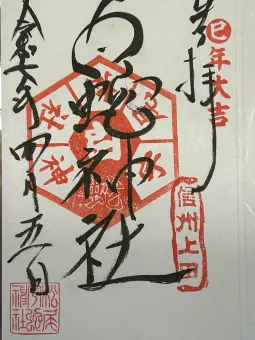 奉拝
巳年大吉
白蛇神社
信州上田
令和七年四月五日